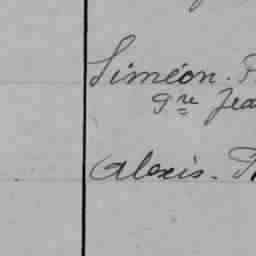 Siméon.
gre Jea
Alexis.